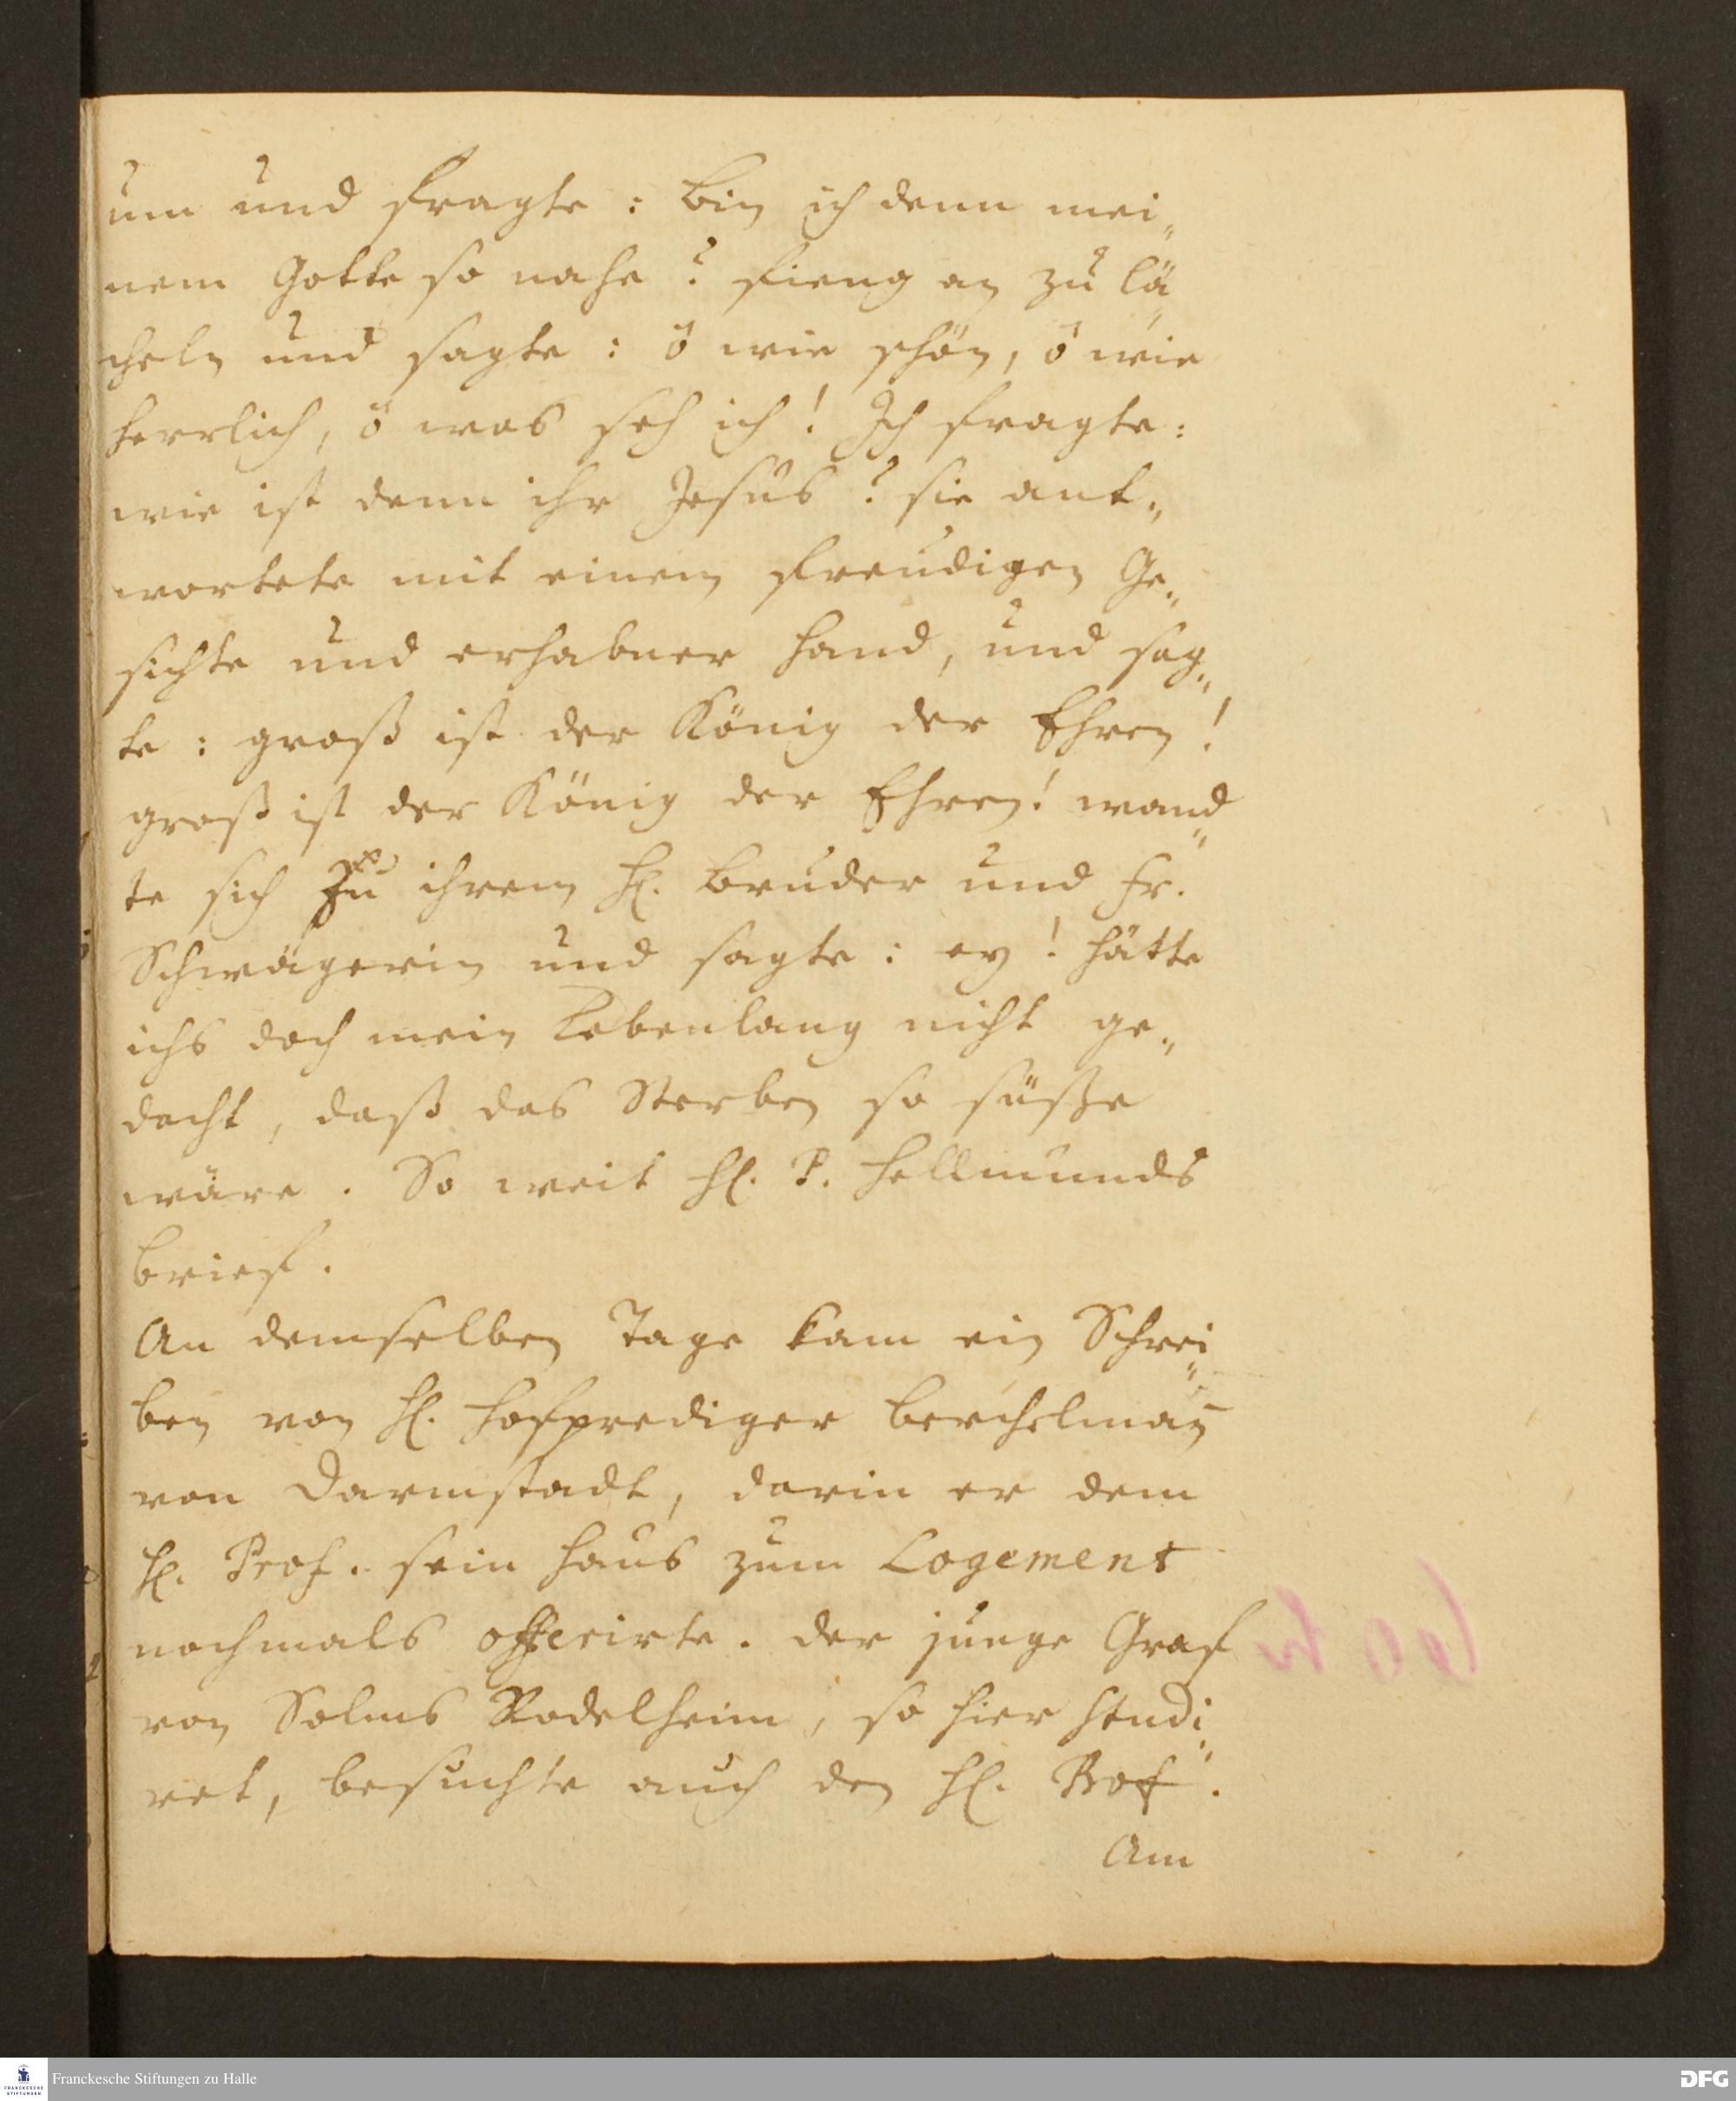 um und fragte: bin ich denn mei„
nem Gotte so nahe? fieng an zu lä„
cheln und sagte: ô wie schön, ô wie
herrlich, ô was seh ich! Ich fragte:
wie ist denn ihr Jesus? sie ant„
wortete mit einem freudigen Ge„
sichte und erhabner Hand, und sag„
te: groß ist der König der Ehren!
groß ist der König der Ehren! wand„
te sich zu ihrem H. Bruder und Fr.
Schwägerin und sagte: ey! hätte
ichs doch mein Lebenlang nicht ge„
dacht, daß das Sterben so süße
wäre. So weit H. P. Hellmunds
brief.
An demselben Tage kam ein Schrei„
ben von H. Hofprediger Berchelmañ
von Darmstadt, darin er dem
H. Prof. sein Haus zum Logement
nochmals offerirte. der junge Graf
von Solms Rodelheim, so hier studi„
ret, besuchte auch den H. Prof.
Am
Franckesche Stiftungen zu Halle
FRANCKESCHE STIFTUNGEN
DFG